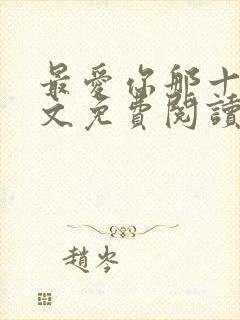 最愛你那十
文免費閱讀
趙岑